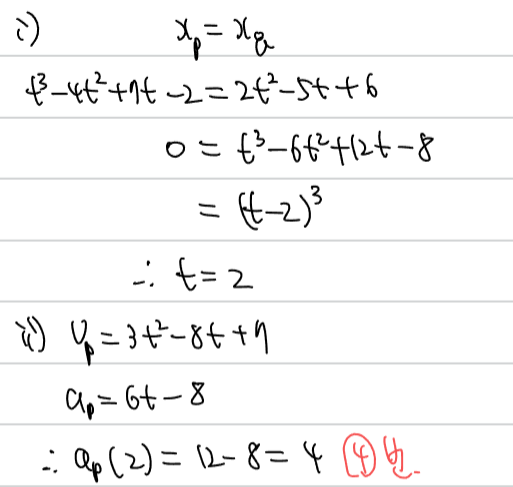 i) xₚ = x_Q
t³-4t²+7t-2 = 2t²-5t+6
0 = t³-6t²+12t-8
= (t-2)³
∴ t=2
ii) vₚ = 3t²-8t+7
aₚ = 6t-8
∴ aₚ(2) = 12-8 = 4 ④번.